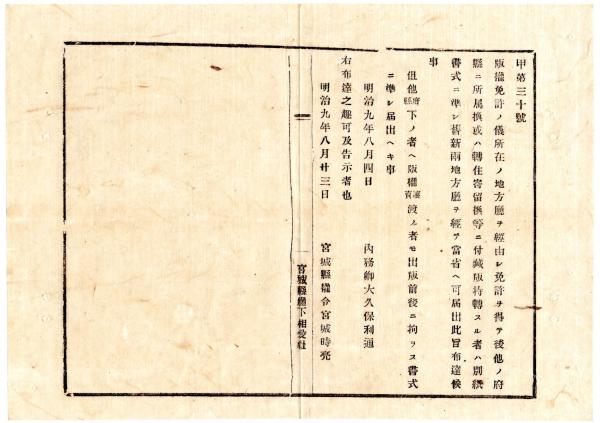 甲第三十號
版權免許ノ儀所在ノ地方廳ヲ經由シ免許ヲ得テ後他ノ府
縣ニ所属換或ハ轉住寄留換等ニ付藏版持轉スル者ハ別紙
書式ニ準シ舊新兩地方廳ヲ經テ當省ヘ可届出此旨布達候
事
但他府縣下ノ者ヘ版權讓賣渡ス者モ出版前後ニ拘ラス書式
ニ準シ届出ヘキ事
明治九年八月四日 内務卿大久保利通
右布達之趣可及告示者也
明治九年八月廿三日 宮城縣權令宮城時亮
宮城縣廳下相愛社